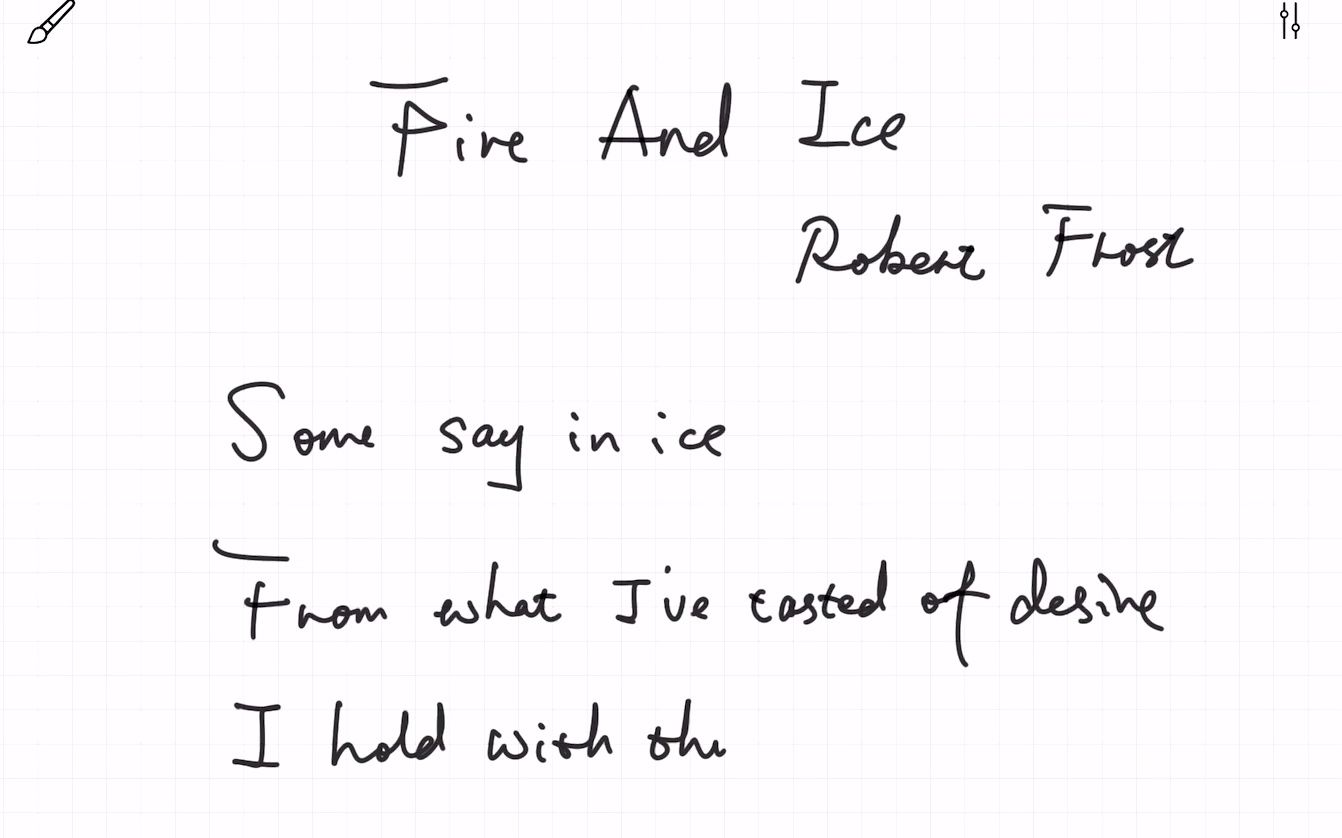 Fire And Ice
Robert Frost
Some say in ice
From what I've tasted of desire
I hold with